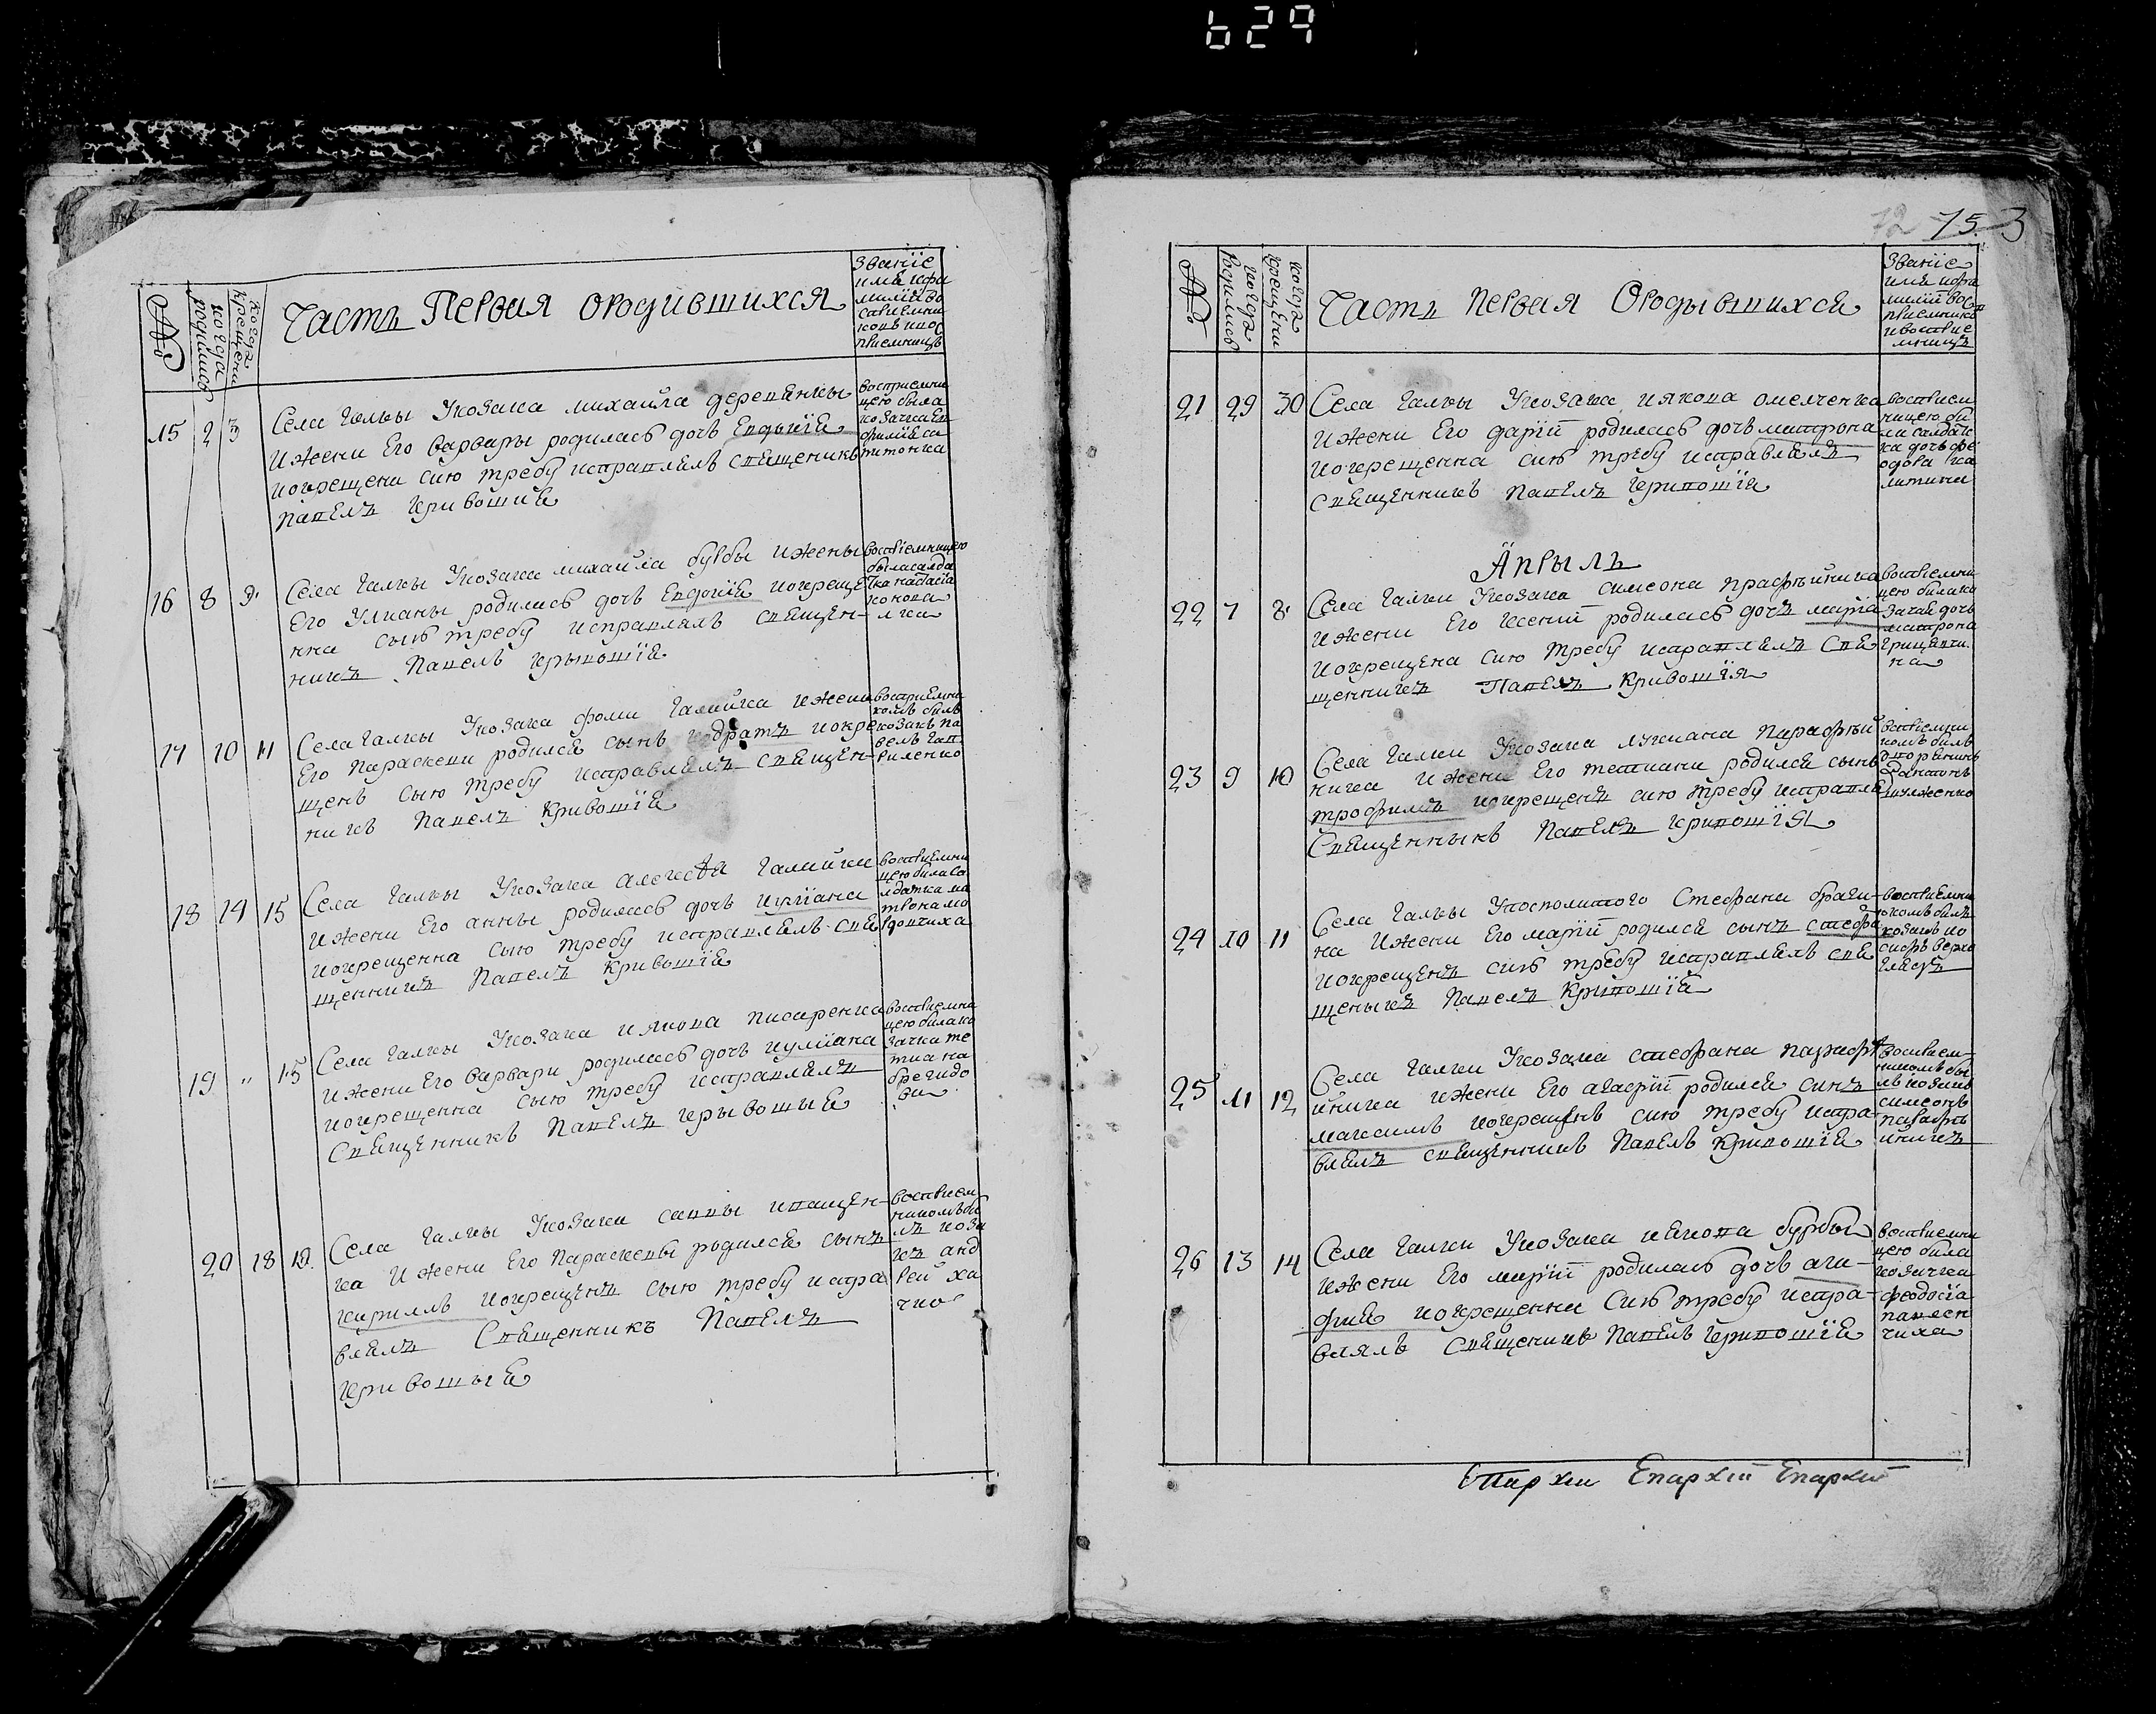 629
№
когда родились
когда крещени
Часть Первая ородившихся
Званiе
имя ифа
милiя во
сприемни
ковъ ивос
приемницъ
15 2 3
Села Галки Укозака михайла
ижени Его варвары родилась дочь Евдокiя
иокрещена сию требу исправлялъ священикъ
Павелъ Кривошия
восприемни
цею била
козачка Ев
фимiя са
16 8 9
Села Галки Укозака михайла бурбы ижены
Его Улианы родилась дочь Евдокiя иокреще
нна сыю требу исправлялъ священ-
никъ Павелъ крывошiя
воспрiемницею
была салда
тка настасiя
17 10 11
Села Галки Укозака фоми Галайка ижени
Его Параскеви родился сынъ кодратъ иокре
щенъ сыю требу исправлялъ священ-
никъ Павелъ Кривошiя
восприемни
комъ билъ
козакъ па
велъ гав
риленко
18 14 15
Села Галки Укозака алексея Галайки
ижени Его анны родилась дочь иулiана
иокрещенна сыю требу исправлялъ свя
щенникъ Павелъ Кривошiя
воспрiемни
цею била са
лдатка ма
трона мо
19 " 15
Села Галки Укозака иякова писаренка
ижени Его варвари родилась дочь иулiана
иокрещенна сыю требу исправлялъ
Священникъ Павелъ крывошыя
воспрiемни
цею била ко
зачка те
тиана
20 18 19
Села Галки Укозака саввы иващен-
ка ижени Его Параскевы родился сынъ
кириллъ иокрещенъ сыю требу испра
влялъ Священникъ Павелъ
кривошыя
воспрiем
никомъ би
лъ коза
къ анд
рей ха
72 75 3
№
когда родились
когда крещени
Часть Первая Ородывшихся
Званiе
имя ифа
милiй вос
прiемниковъ
ивоспрiе
мницъ
21 29 30
Села Галки Укозака иякова омелченка
ижени Его дарiй родилась дочь матрона
иокрещенна сию требу исправлялъ
Священникъ Павелъ кривошiя
воспрiем
ницею би
ла салдатс
ка дочь фе
одора ка
Априль
22 7 8
Села Галки Укозака симеона
ижени Его ксенiй родилась дочь марiя
иокрещена сию требу исправлялъ Свя
щенникъ Павелъ Кривошiя
воспрiемни
цею била ко
зачая дочь
матрона
23 9 10
Села Галки Укозака лукиана Парафiй
ника ижени Его тетиани родился сынъ
трофимъ иокрещенъ сию требу исправля
Священныкъ Павелъ кривошiя
воспрiемни
комъ билъ
дворянинъ
24 10 11
Села Галки Упосполитого Стефана браги-
на Ижени Его марiй родился сынъ стефа
иокрещенъ сию требу исправлялъ свя
щеныкъ Павелъ Кривошiя
воспрiемни
комъ билъ
козакъ ио
сифъ верхо
глядъ
25 11 12
Села Галки Укозака стефана
ижени Его агафiй родился синъ
максимъ иокрещенъ сию требу испра-
влялъ священникъ Павелъ Кривошiя
воспрiем-
никомъ бы
лъ козакъ
симеонъ
26 13 14
Села Галки Укозака иякова бурбы
ижени Его марiй родилась дочь ага-
фия иокрещенна Сию требу испра-
влялъ Священикъ Павелъ Кривошiя
воспрiемни
цею била
козачка
феодосiя
павлен
чиха
Епархiи Епархiи Епархiи